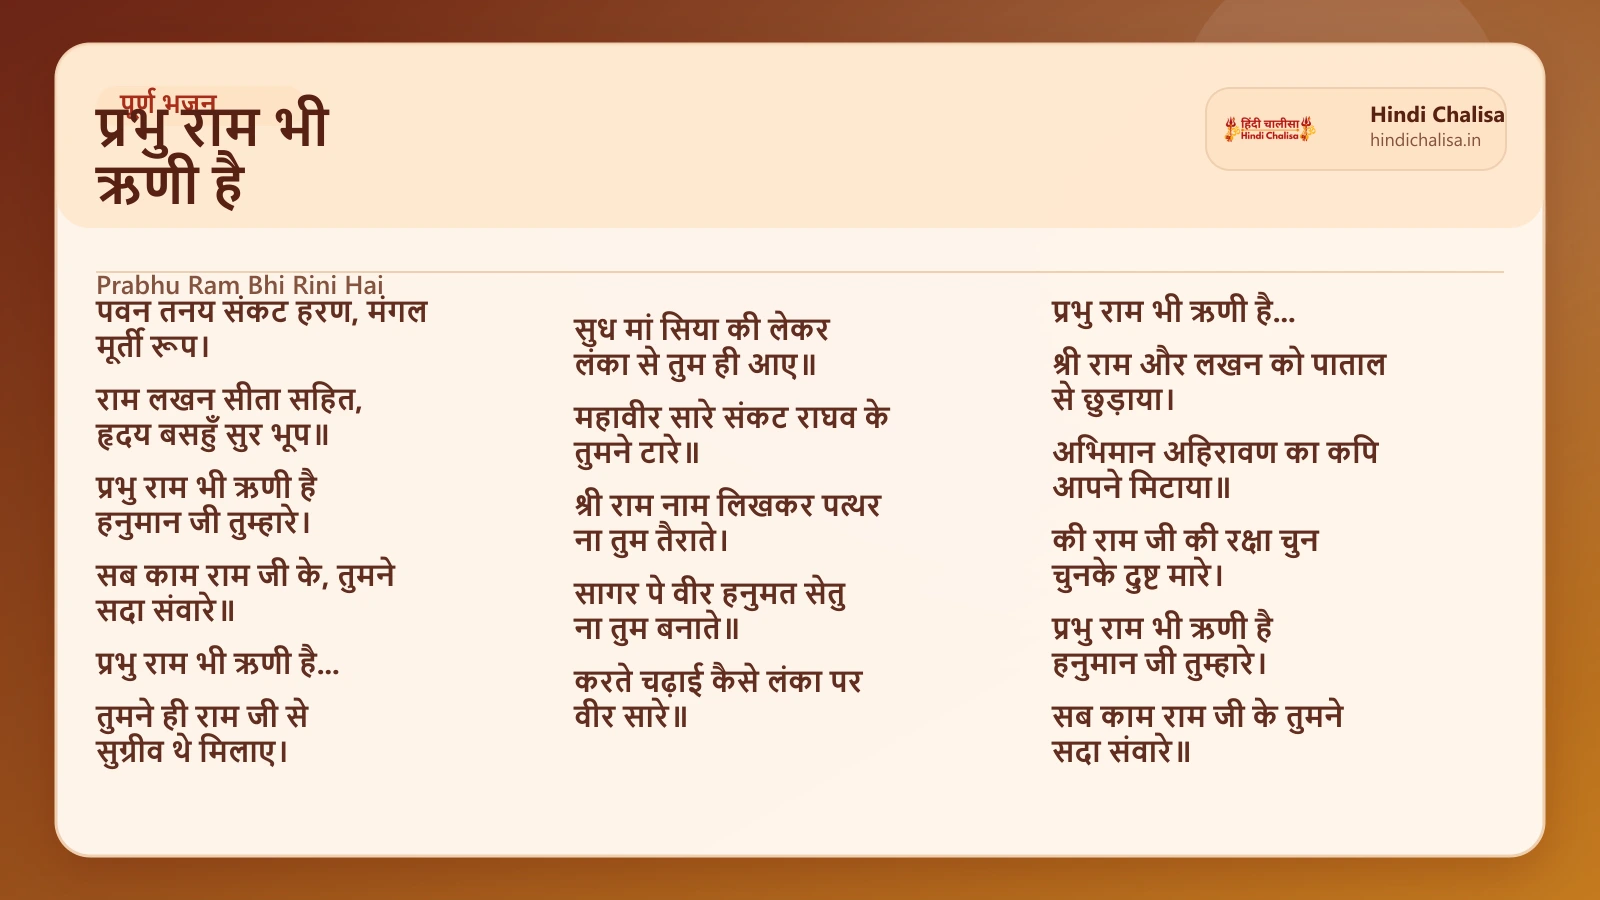 पूर्ण भजन
प्रभु राम भी
ऋणी है
हिंदी चालीसा
Hindi Chalisa
Hindi Chalisa
hindichalisa.in
Prabhu Ram Bhi Rini Hai
पवन तनय संकट हरण, मंगल
मूर्ती रूप।
राम लखन सीता सहित,
हृदय बसहुँ सुर भूप॥
प्रभु राम भी ऋणी है
हनुमान जी तुम्हारे।
सब काम राम जी के, तुमने
सदा संवारे॥
प्रभु राम भी ऋणी है...
तुमने ही राम जी से
सुग्रीव थे मिलाए।
सुध मां सिया की लेकर
लंका से तुम ही आए॥
महावीर सारे संकट राघव के
तुमने टारे॥
श्री राम नाम लिखकर पत्थर
ना तुम तैराते।
सागर पे वीर हनुमत सेतु
ना तुम बनाते॥
करते चढ़ाई कैसे लंका पर
वीर सारे॥
प्रभु राम भी ऋणी है...
श्री राम और लखन को पाताल
से छुड़ाया।
अभिमान अहिरावण का कपि
आपने मिटाया॥
की राम जी की रक्षा चुन
चुनके दुष्ट मारे।
प्रभु राम भी ऋणी है
हनुमान जी तुम्हारे।
सब काम राम जी के तुमने
सदा संवारे॥